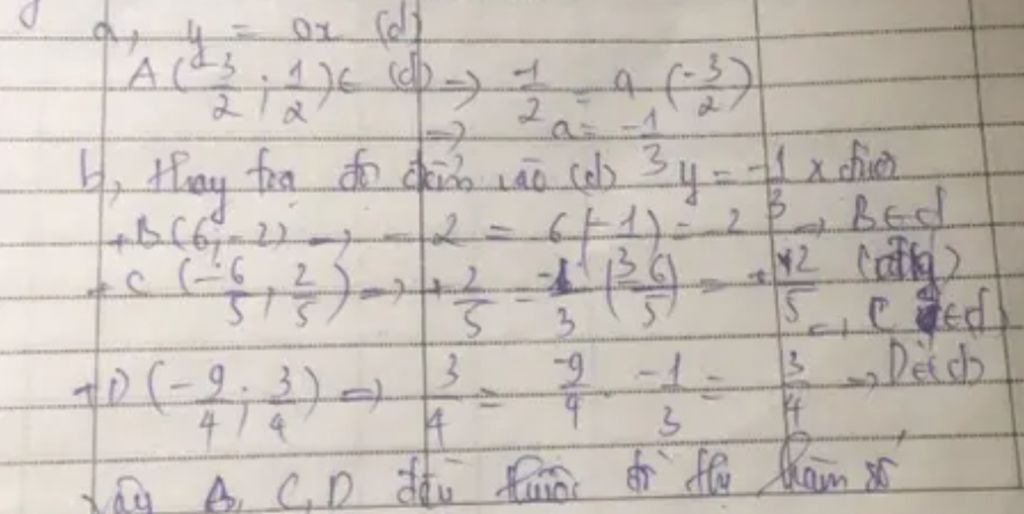 a, y = ax (d)
A(-3/2; 1/2) ∈ (d) => 1/2 = a (-3/2)
=> a = -1/3
b, thay toạ độ điểm vào (d) y = -1/3 x được
+ B(6; -2) => -2 = 6(-1/3) = -2 => B ∈ d
+ C (-6/5; 2/5) => +2/5 = -1/3 (-6/5) = +2/5 => C ∈ d
+ D (-9/4; 3/4) => 3/4 = -9/4 . -1/3 = 3/4 => D ∈ (d)
Vậy B, C, D đều thuộc đồ thị hàm số